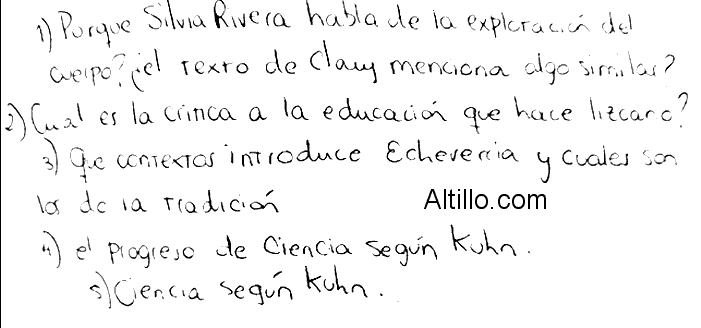 1) Porque Silvia Rivera habla de la exploración del
cuerpo? ¿el texto de Clauy menciona algo similar?
2) Cual es la critica a la educación que hace lizcano?
3) Que contextos introduce Echeverria y cuales son
los de la tradición
Altillo.com
4) el progreso de Ciencia según Kuhn.
5) Ciencia según Kuhn.